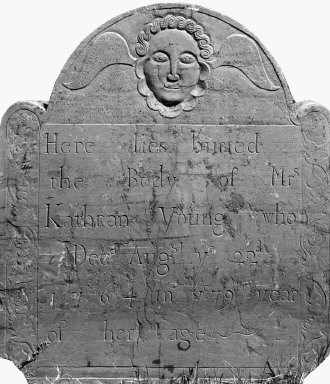 Here lies buried
the Body of Mrs
Kathran Young who
Decd Augst ye 22d
1764 in ye 79 year
of her age